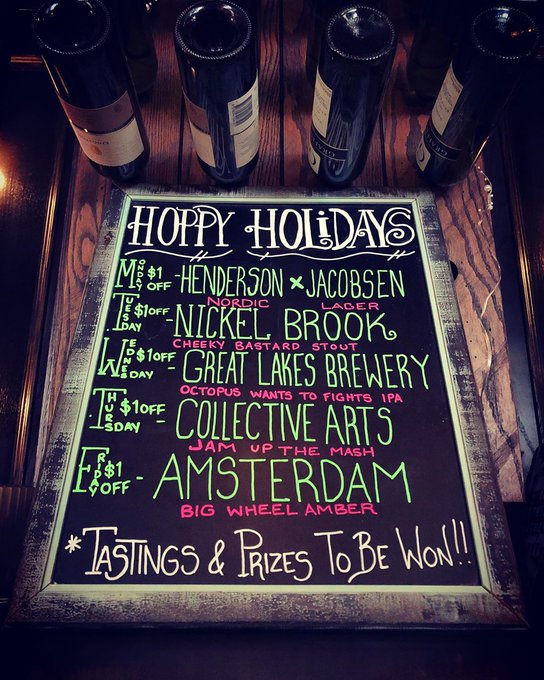 HOPPY HOLiDAYS
MONDAY $1 OFF - HENDERSON x JACOBSEN
NORDIC LAGER
TUESDAY $1 OFF - NICKEL BROOK
CHEEKY BASTARD STOUT
WEDNESDAY $1 OFF - GREAT LAKES BREWERY
OCTOPUS WANTS TO FIGHTS IPA
THURSDAY $1 OFF - COLLECTIVE ARTS
JAM UP THE MASH
FRIDAY $1 OFF - AMSTERDAM
BIG WHEEL AMBER
* TASTINGS & PRIZES TO BE WON!!